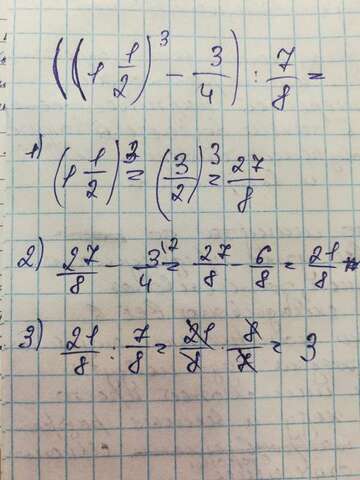 ((1 1/2)^3 - 3/4) : 7/8 =
1) (1 1/2)^3 = (3/2)^3 = 27/8
2) 27/8 - 3^(12/4 = 27/8 - 6/8 = 21/8
3) 21/8 : 7/8 = 21/8 · 8/7 = 3